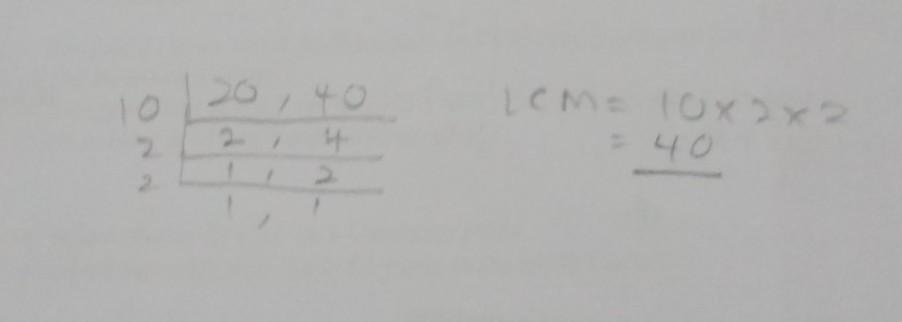 10 | 20, 40
2 | 2, 4
2 | 1, 2
1, 1
LCM = 10 x 2 x 2
= 40